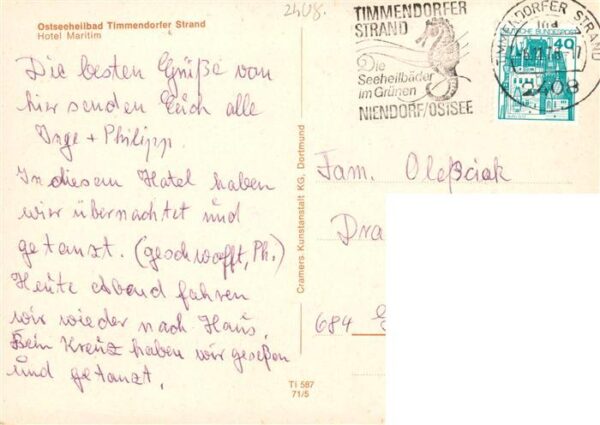 Ostseeheilbad Timmendorfer Strand
Hotel Maritim
Die besten Grüße von
hier senden Euch alle
Inge + Philipp.
In diesem Hotel haben
wir übernachtet und
getanzt. (geschwooft, Ph.)
Heute abend fahren
wir wieder nach Haus.
Beim Kreuz haben wir geseßen
und getanzt.
Cramers Kunstanstalt KG, Dortmund
Ti 587
71/5
2408.
TIMMENDORFER
STRAND
Die
Seeheilbäder
im Grünen
NIENDORF/OSTSEE
TIMMENDORFER STRAND
2408
DEUTSCHE BUNDESPOST
40
Fam. Oleßciak
Dra
684